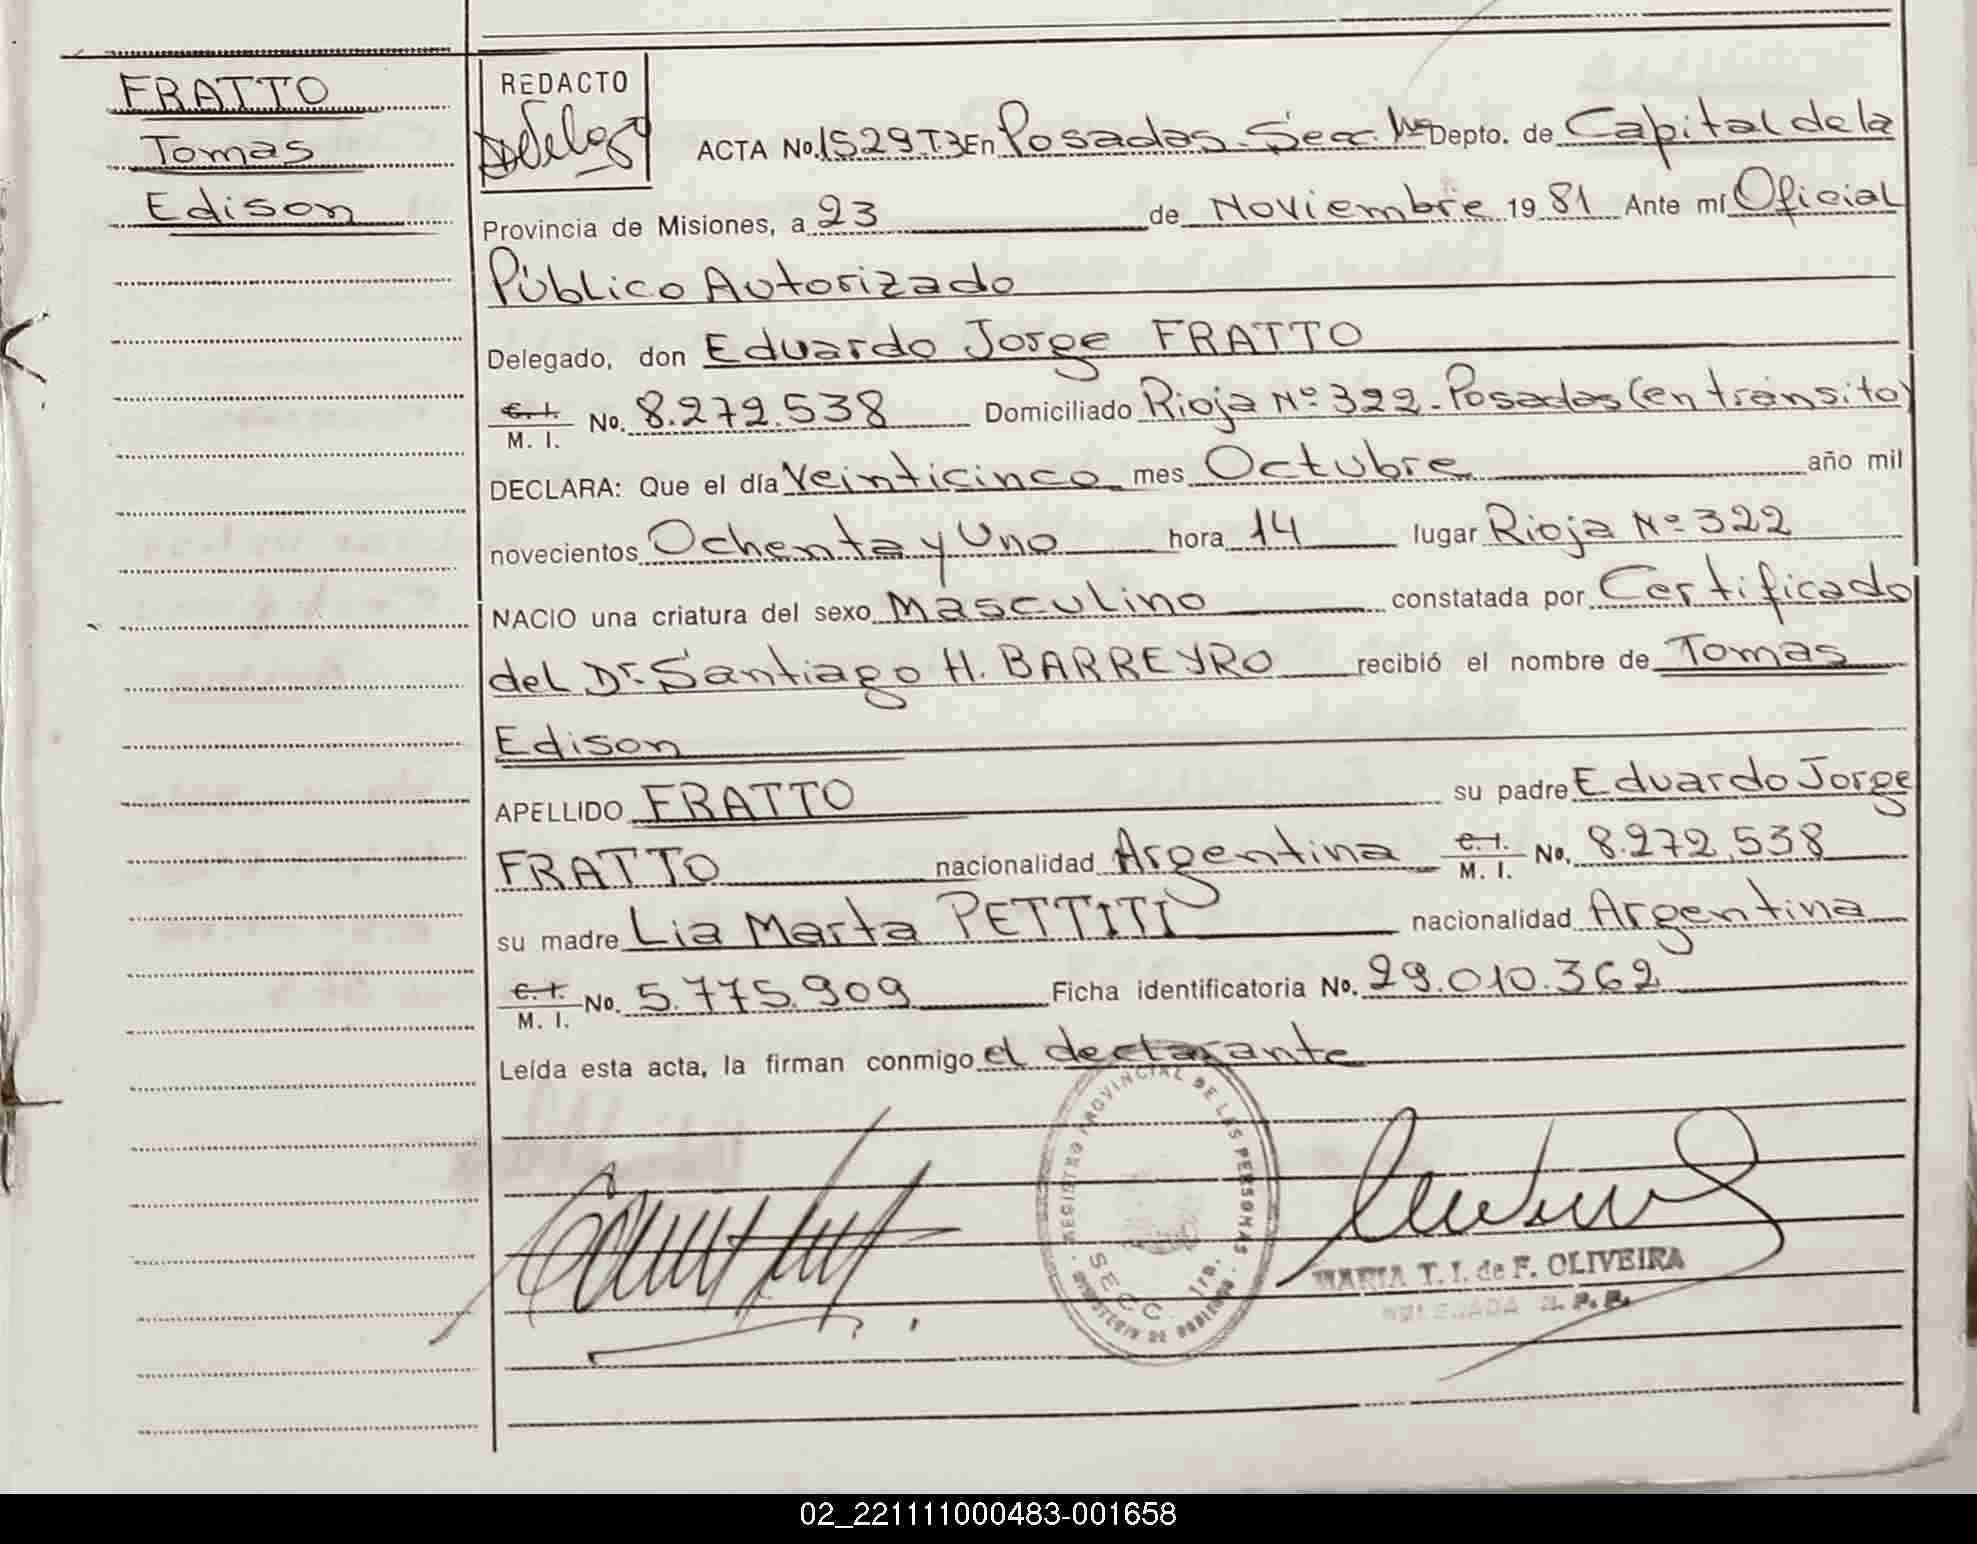 FRATTO
Tomas
Edison
REDACTO
ACTA No. 1529 T.3 En Posadas - Secc. 1ra Depto. de Capital de la
Provincia de Misiones, a 23 de Noviembre 19 81 Ante mí Oficial
Público Autorizado
Delegado, don Eduardo Jorge FRATTO
C. I. M. I. No. 8.272.538 Domiciliado Rioja Nº 322 - Posadas (en tránsito)
DECLARA: Que el día Veinticinco mes Octubre año mil
novecientos Ochenta y Uno hora 14 lugar Rioja Nº 322
NACIO una criatura del sexo Masculino constatada por Certificado
del Dr. Santiago H. BARREYRO recibió el nombre de Tomas
Edison
APELLIDO FRATTO su padre Eduardo Jorge
FRATTO nacionalidad Argentina C. I. M. I. No. 8.272.538
su madre Lia Marta PETTITI nacionalidad Argentina
C. I. M. I. No. 5.775.909 Ficha identificatoria No. 29.010.362
Leída esta acta, la firman conmigo el declarante
REGISTRO PROVINCIAL DE LAS PERSONAS
SECC. 1ra.
MINISTERIO DE GOBIERNO
MARIA T. I. de F. OLIVEIRA
DELEGADA R. P. P.
02_221111000483-001658